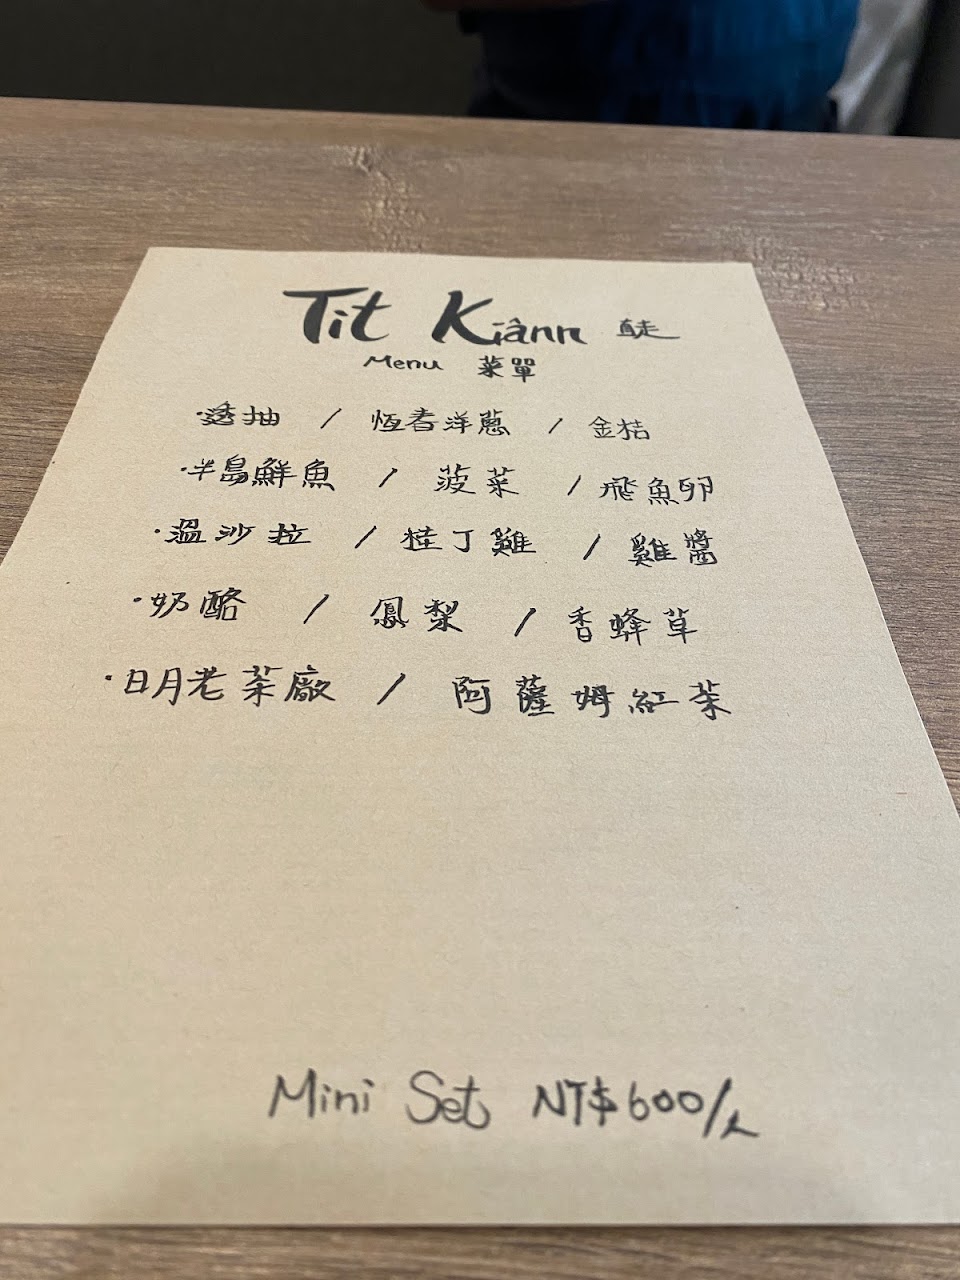 Tit Kiânn 直走
Menu 菜單
·透抽 / 恆春洋蔥 / 金桔
·半島鮮魚 / 菠菜 / 飛魚卵
·溫沙拉 / 桂丁雞 / 雞醬
·奶酪 / 鳳梨 / 香蜂草
·日月老茶廠 / 阿薩姆紅茶
Mini Set NT$600/人